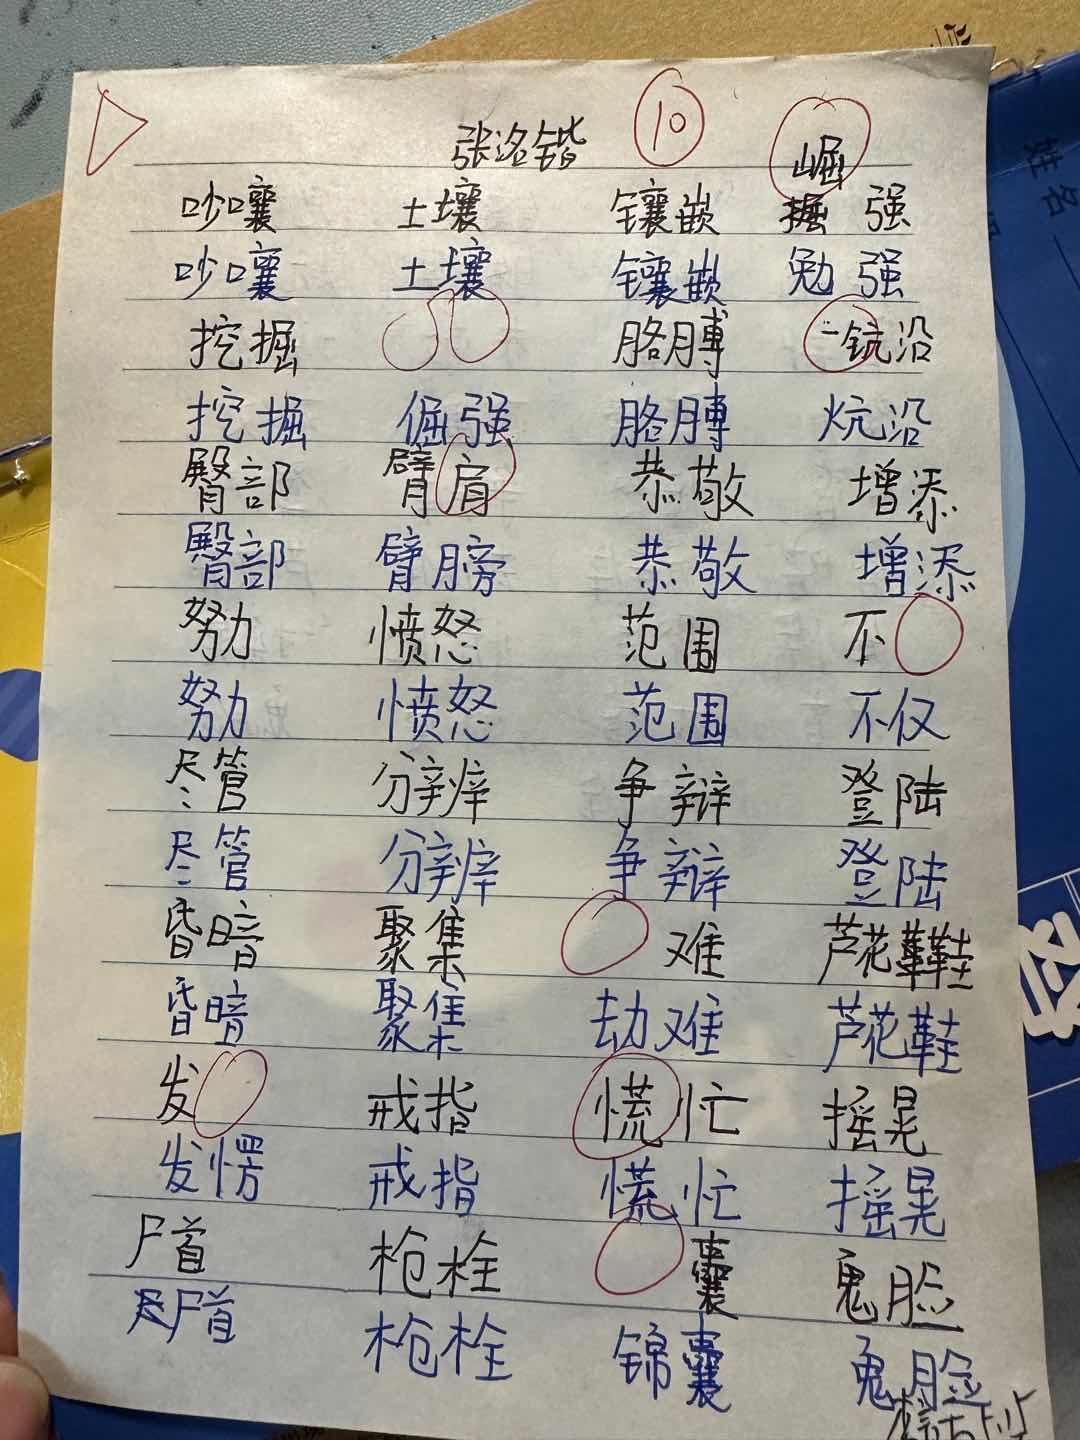 张洛锴 10 崛
吵嚷 土壤 镶嵌 掘强
吵嚷 土壤 镶嵌 勉强
挖掘 胳膊 一钪沿
挖掘 倔强 胳膊 炕沿
臀部 臂肩 恭敬 增添
臀部 臂膀 恭敬 增添
努力 愤怒 范围 不
努力 愤怒 范围 不仅
尽管 分辨 争辩 登陆
尽管 分辨 争辩 登陆
昏暗 聚集 难 芦花鞋
昏暗 聚集 劫难 芦花鞋
发 戒指 慌忙 摇晃
发愣 戒指 慌忙 摇晃
尸首 枪栓 囊 鬼脸
尸首 枪栓 锦囊 鬼脸
姓名